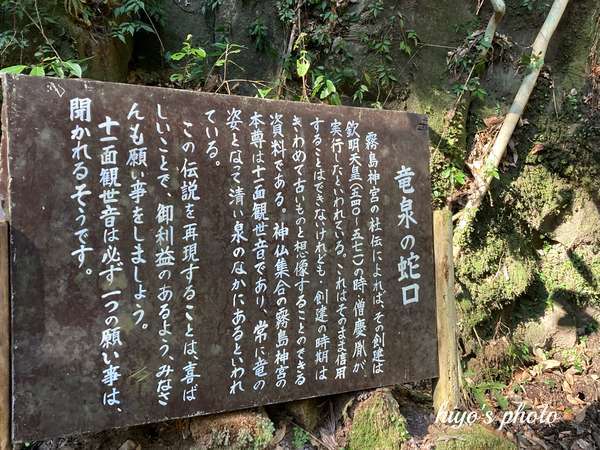 竜泉の蛇口
霧島神宮の社伝によれば、その創建は
欽明天皇(五四〇～五七一)の時・僧慶胤が
実行したといわれている。これはそのまま信用
することはできないけれども・創建の時期は
きわめて古いものと想像することのできる
資料である。神仏集合の霧島神宮の
本尊は十一面観世音であり、常に竜の
姿となって清い泉のなかにあるといわれ
ている。
この伝説を再現することは、喜ば
しいことで、御利益のあるよう、みなさ
んも願い事をしましょう。
十一面観世音は必ず一つの願い事は、
聞かれるそうです。
hiyo's photo